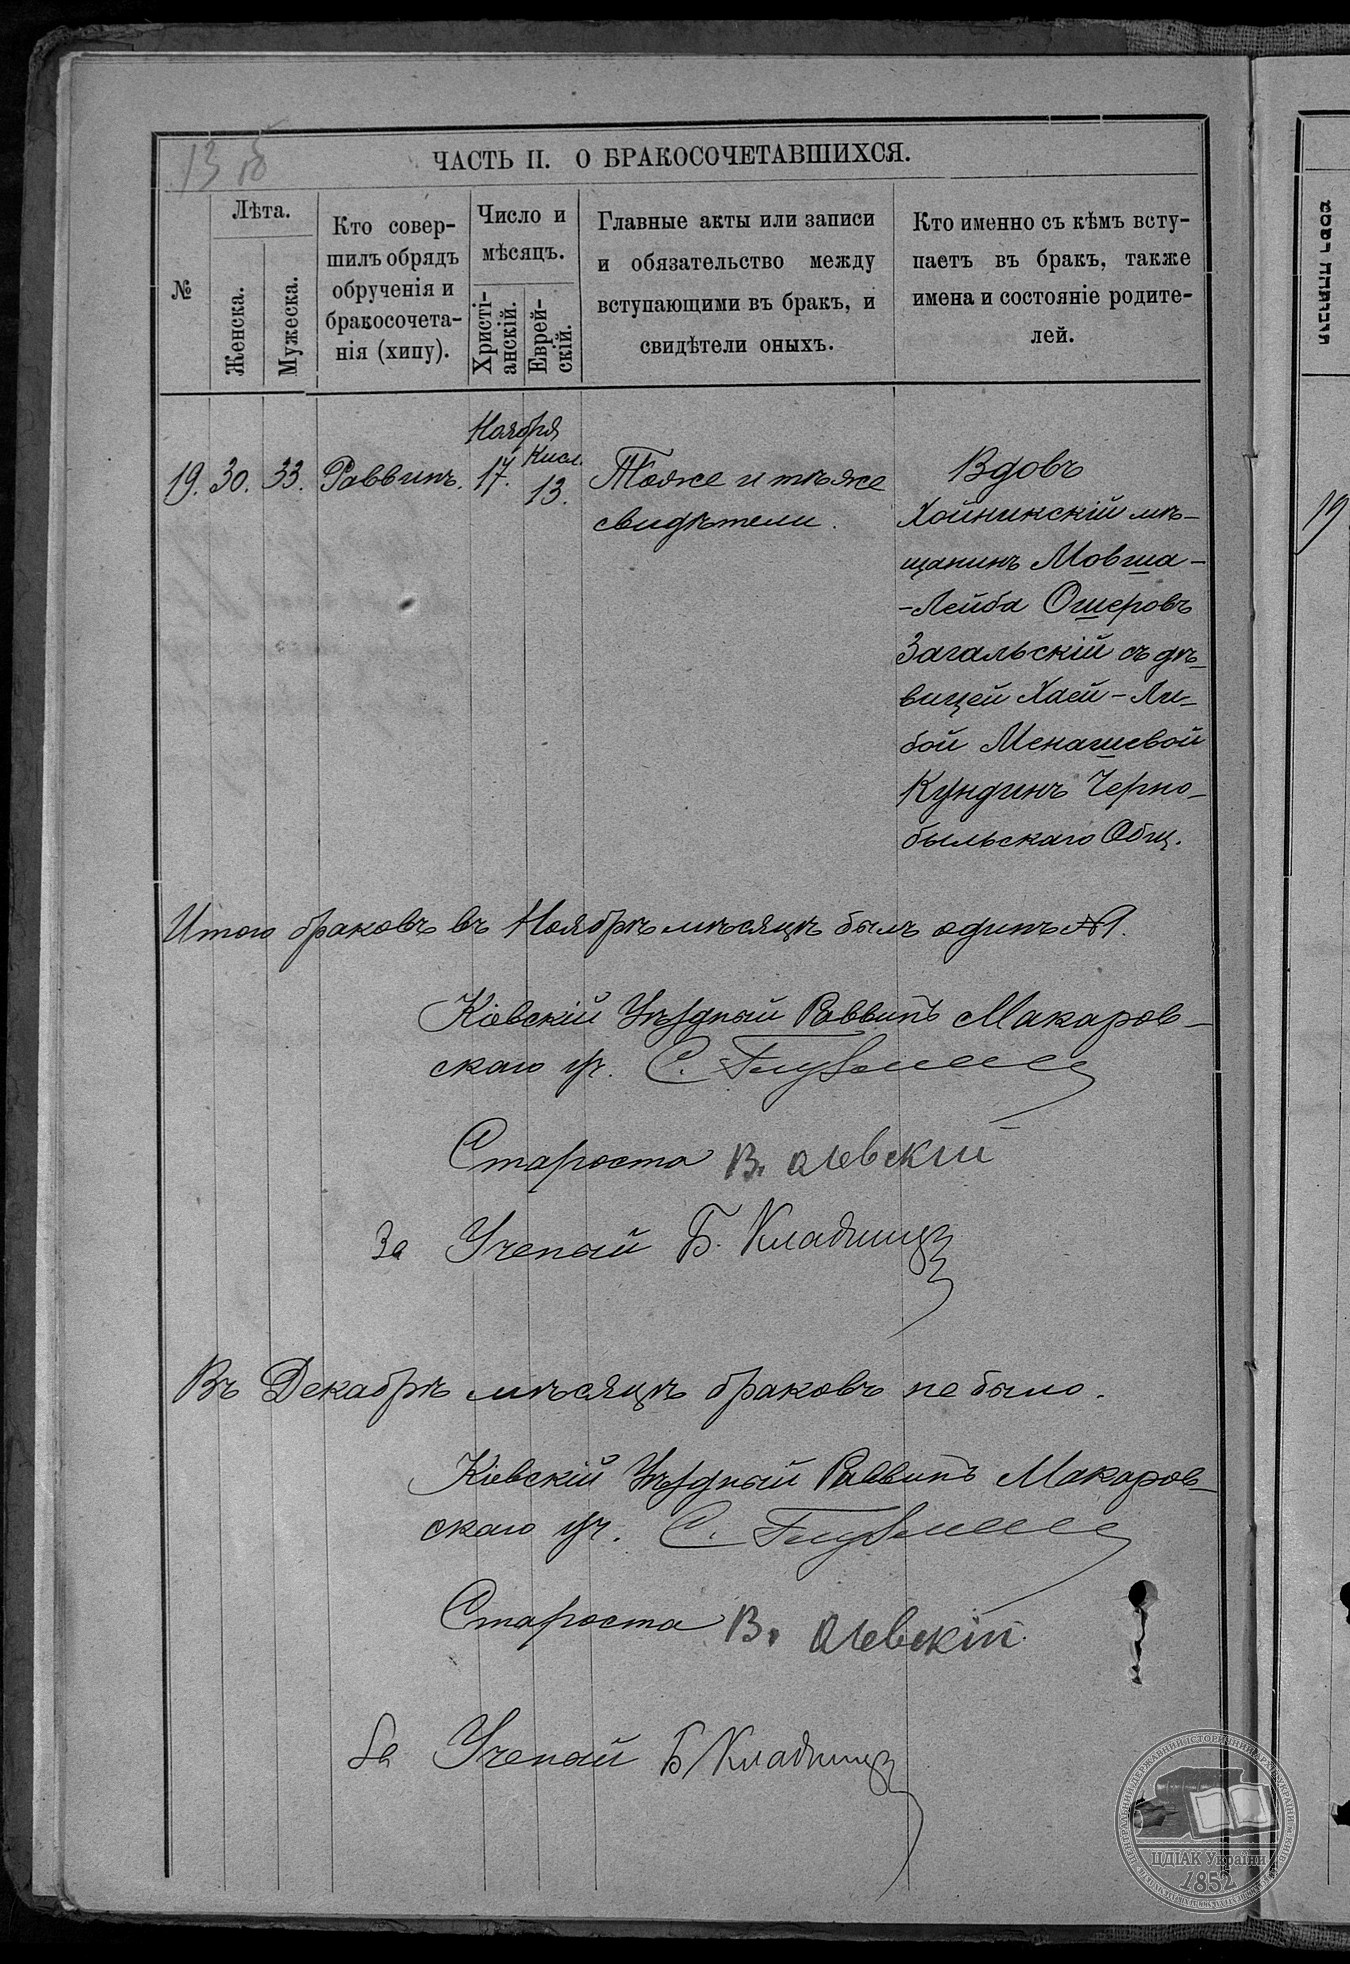 13 об
ЧАСТЬ II. О БРАКОСОЧЕТАВШИХСЯ.
№
Лѣта.
Женска.
Мужеска.
Кто совер-
шилъ обрядъ
обрученія и
бракосочета-
нія (хипу).
Число и
мѣсяцъ.
Христі-
анскій.
Еврей-
скій.
Главные акты или записи
и обязательство между
вступающими въ бракъ, и
свидѣтели оныхъ.
Кто именно съ кѣмъ всту-
паетъ въ бракъ, также
имена и состояніе родите-
лей.
19. 30. 33. Раввинъ.
Ноября
17.
Кисл.
13.
Тоже и тѣже
свидѣтели.
Вдовъ
Хойникскій мѣ-
щанинъ Мовша-
-Лейба Ошеровъ
Загальскій съ дѣ-
вицей Хаей-Ли-
бой Менашевой
Кундинъ Черно-
быльскаго Общ.
Итого браковъ въ Ноябрѣ мѣсяцѣ былъ одинъ №1.
Кіевскій Уѣздный Раввинъ Макаров-
скаго уч. С.
Староста В.
За Ученый Б.
Въ Декабрѣ мѣсяцѣ браковъ не было.
Кіевскій Уѣздный Раввинъ Макаров-
скаго уч. С.
Староста В.
За Ученый Б
19
ЦДІАК України
1852